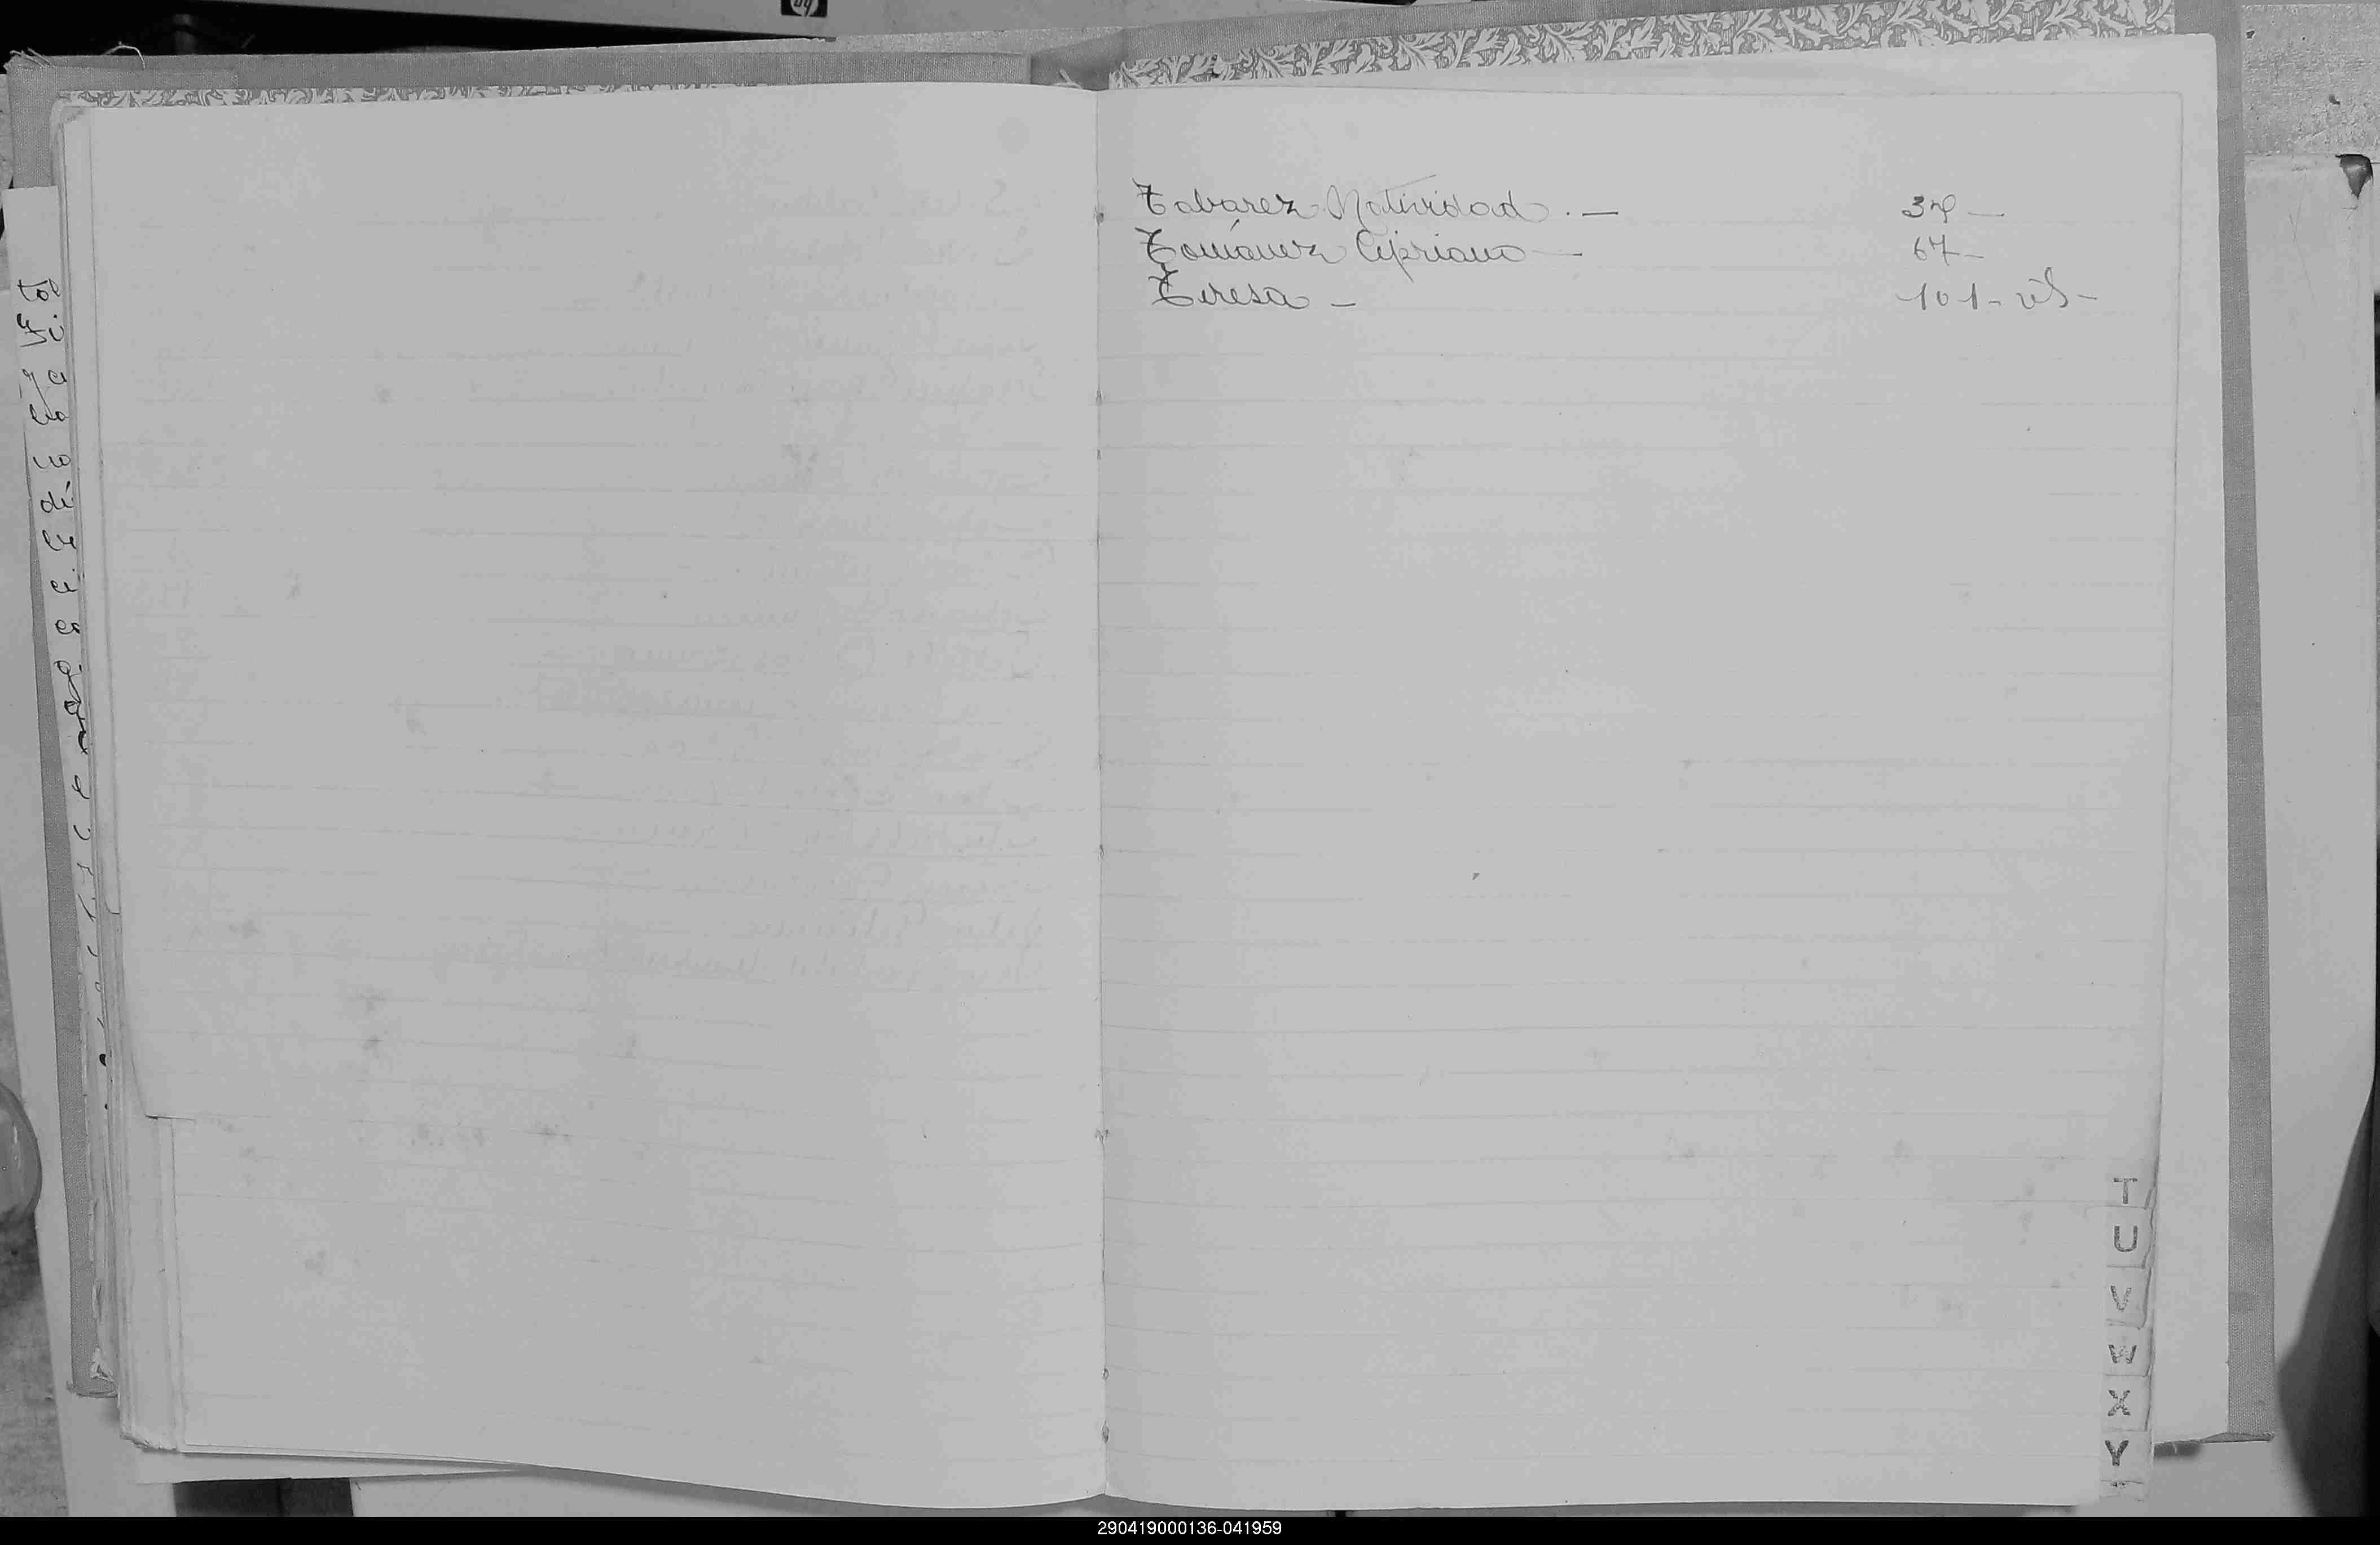 Tabarez Natividad . — 37 —
Tomáuez Cipriano — 67 —
Teresa — 101 - vº —
T
U
V
W
X
Y
290419000136-041959